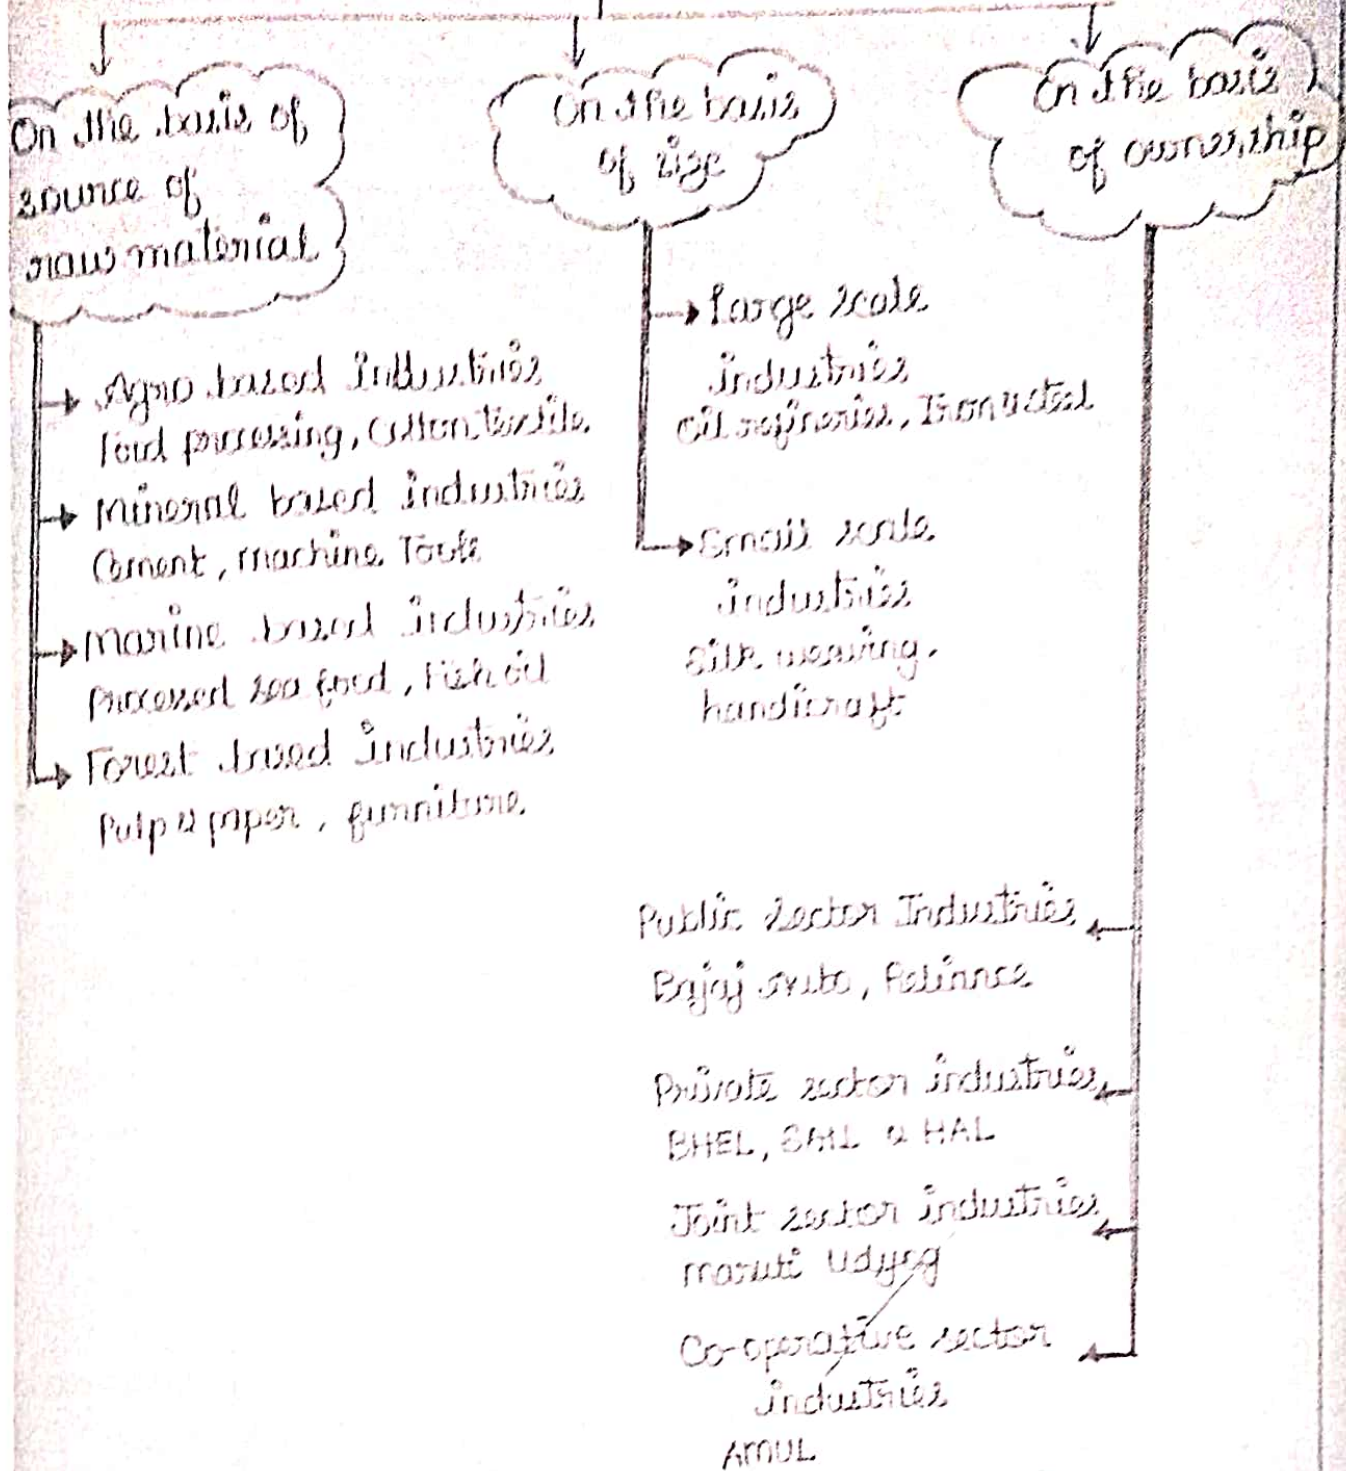 On the basis of
source of
raw material
Agro based Industries
Food processing, Cotton Textile
Mineral based industries
Cement, Machine Tools
Marine based industries
Processed sea food, Fish oil
Forest based Industries
Pulp & paper, furniture
On the basis
of size
Large scale
industries
Oil refineries, Iron & steel
Small scale
industries
Silk weaving,
handicraft
On the basis
of ownership
Public sector Industries
Bajaj Auto, Reliance
Private sector industries
BHEL, SAIL & HAL
Joint sector industries
Maruti Udyog
Co-operative sector
industries
AMUL